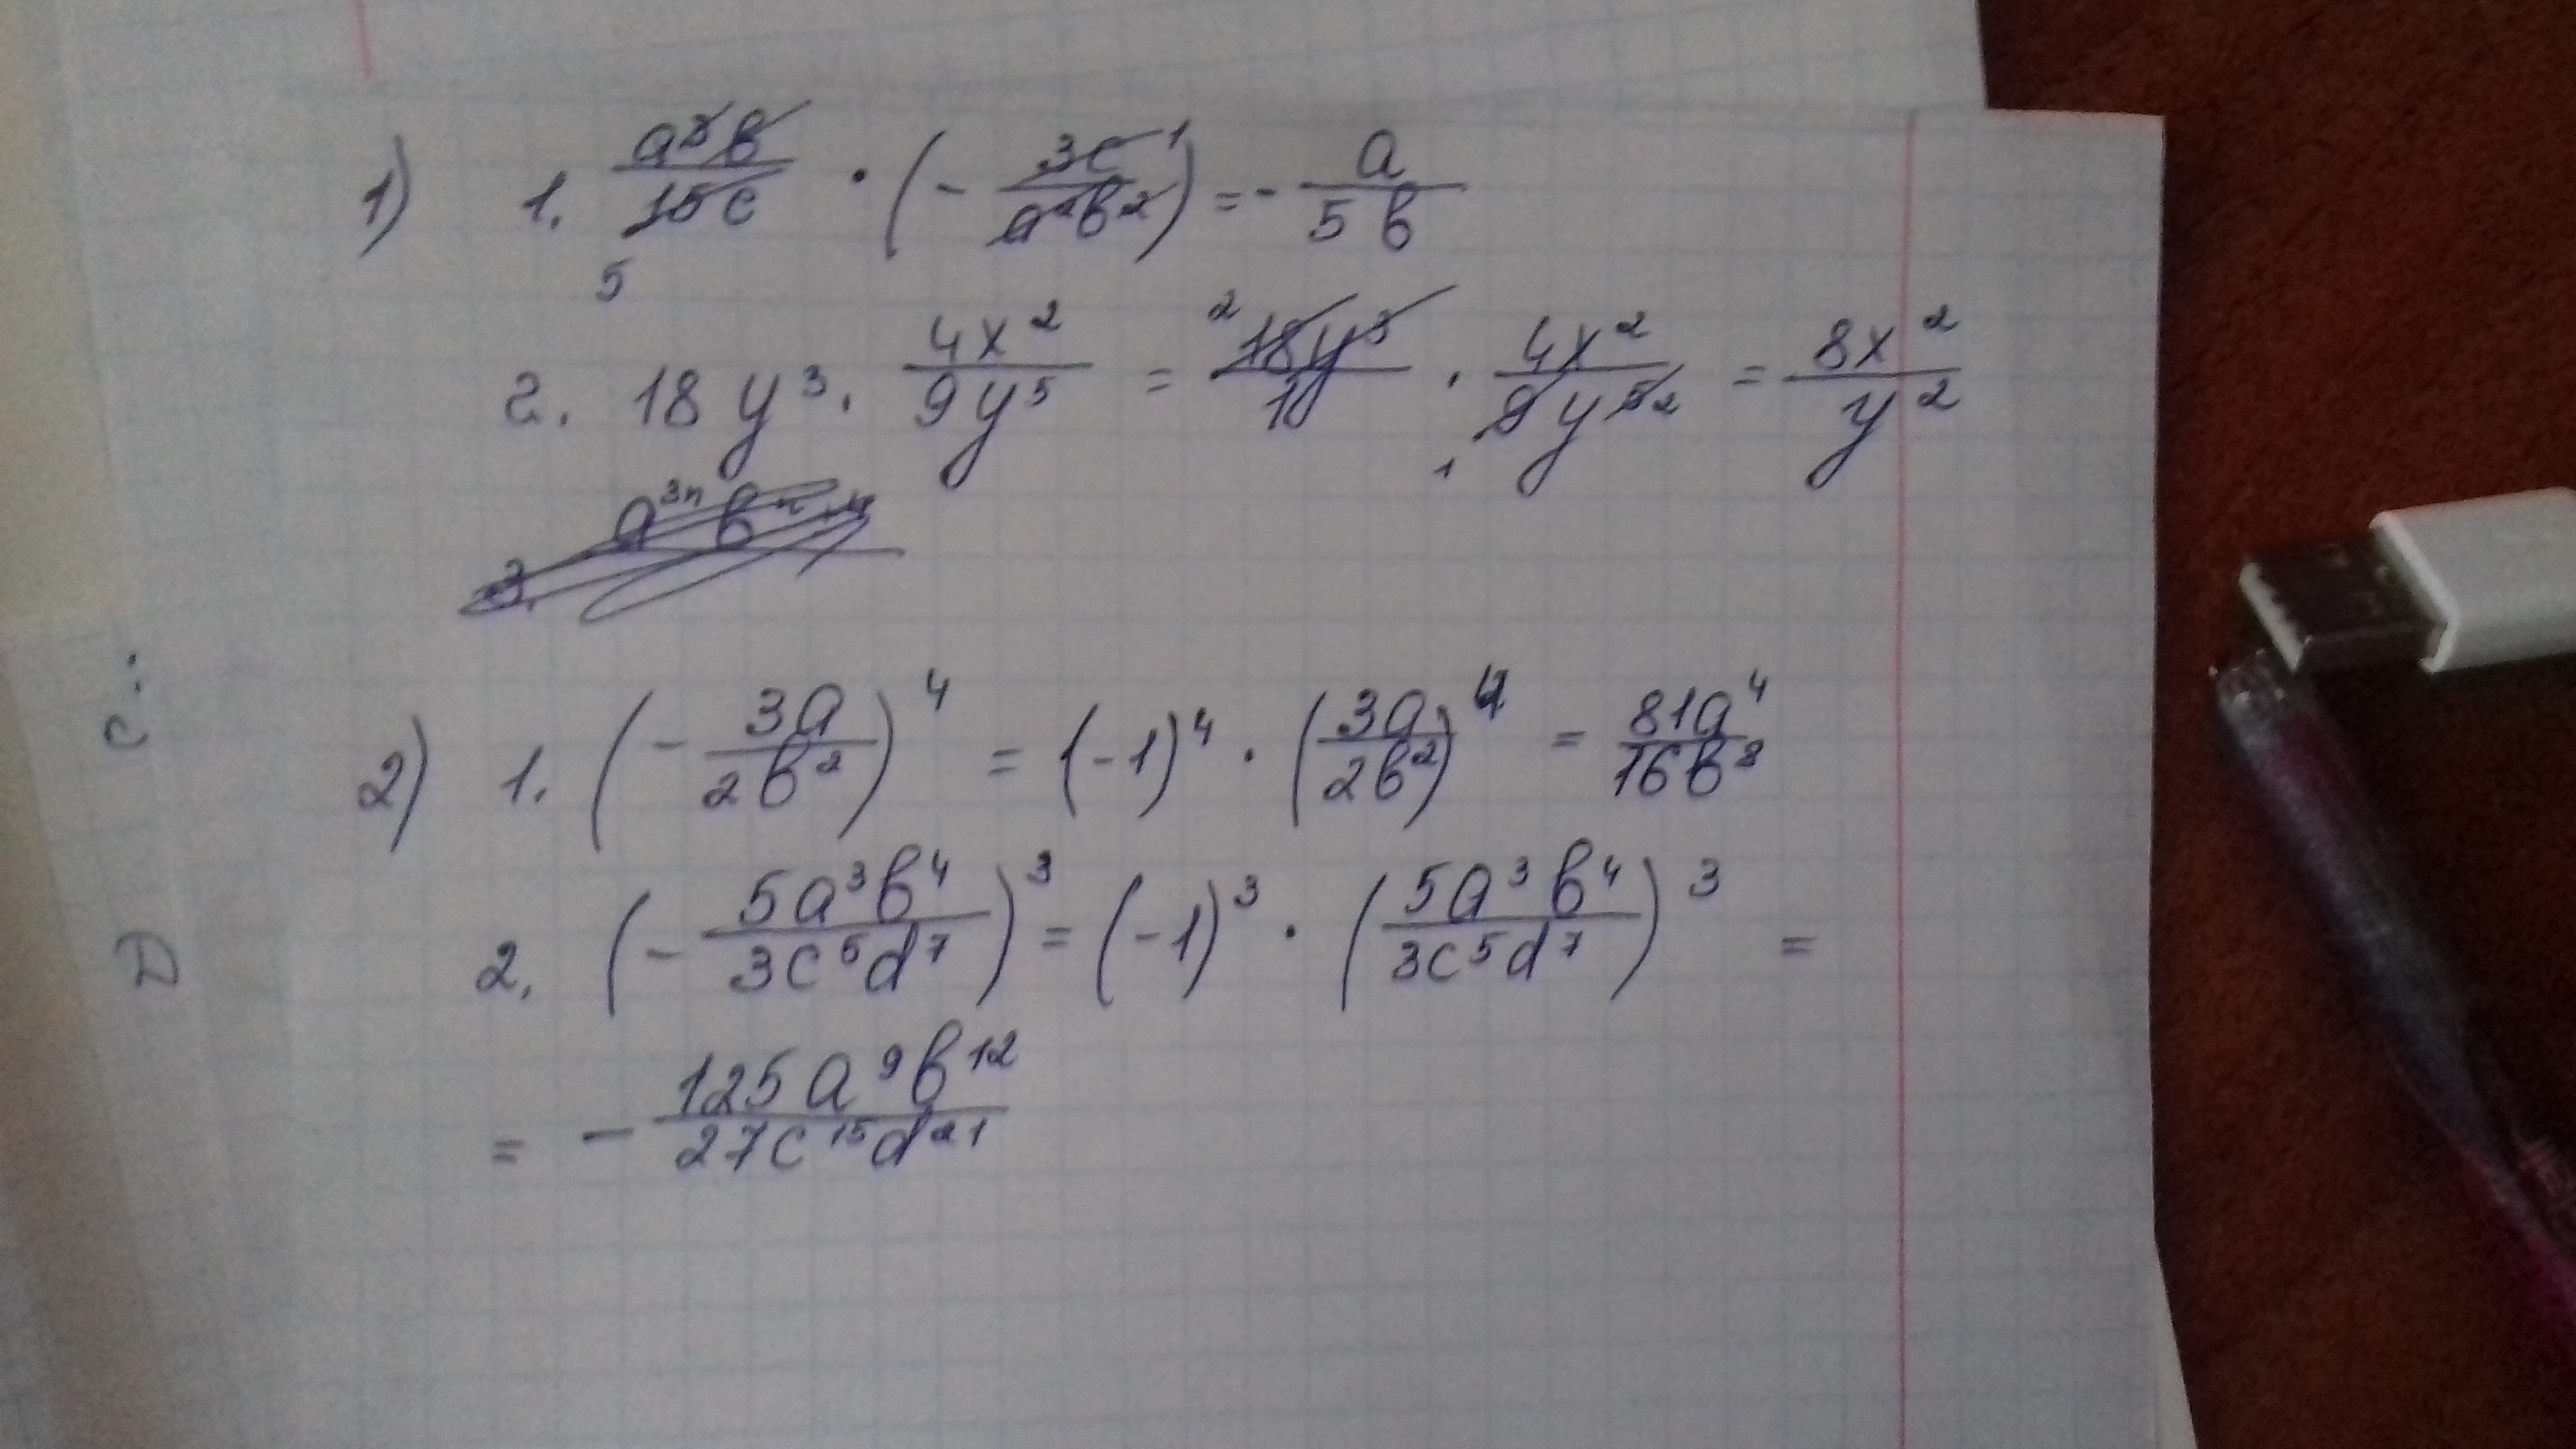 1) 1. a³b/15c · (- 3c/a²b²) = - a/5b
5 1
2. 18y³ · 4x²/9y⁵ = 18y³/1 · 4x²/9y⁵ = 8x²/y²
2 1 2
3. a³ⁿbⁿ
c :
2) 1. (- 3a/2b²)⁴ = (-1)⁴ · (3a/2b²)⁴ = 81a⁴/16b⁸
D
2. (- 5a³b⁴/3c⁵d⁷)³ = (-1)³ · (5a³b⁴/3c⁵d⁷)³ =
= - 125a⁹b¹²/27c¹⁵d²¹